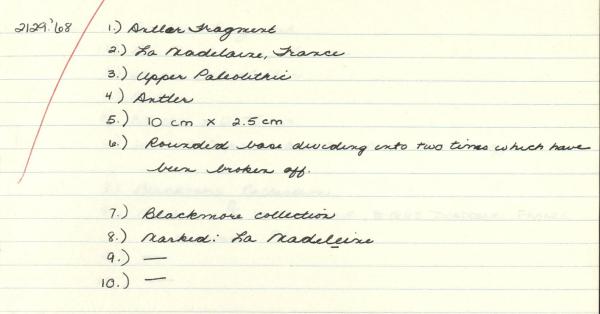 2129.'68 1.) Antler Fragment
2.) La Madelaine, France
3.) Upper Paleolithic
4.) Antler
5.) 10 cm x 2.5 cm
6.) Rounded base dividing into two tines which have
been broken off.
7.) Blackmore collection
8.) Marked: La Madeleine
9.) —
10.) —